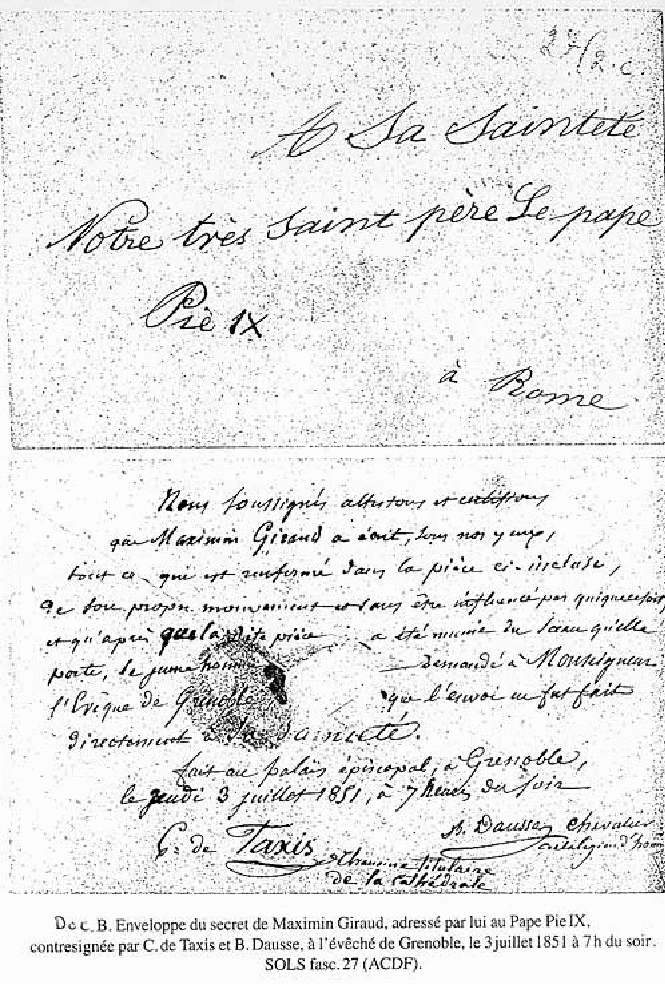 27/2.c.
A Sa Sainteté
Notre très Saint père Le pape
Pie IX
à Rome
Nous soussignés attestons et certifions
que Maximin Giraud a écrit, sous nos yeux,
tout ce qui est renfermé dans la pièce ci-incluse,
de son propre mouvement et sans être influencé par quique ce soit
et qu'après que la dite pièce a été munie du sceau qu'elle
porte, le jeune homme demandé à Monseigneur
l'Evêque de Grenoble que l'envoi en fut fait
directement à Sa Sainteté.
fait au palais épiscopal, à Grenoble,
le jeudi 3 juillet 1851, à 7 heures du soir
C. de Taxis
Chanoine titulaire
de la cathédrale
Dausse, chevalier
Doc. B. Enveloppe du secret de Maximin Giraud, adressé par lui au Pape Pie IX,
contresignée par C. de Taxis et B. Dausse, à l'évêché de Grenoble, le 3 juillet 1851 à 7h du soir.
SOLS fasc. 27 (ACDF).